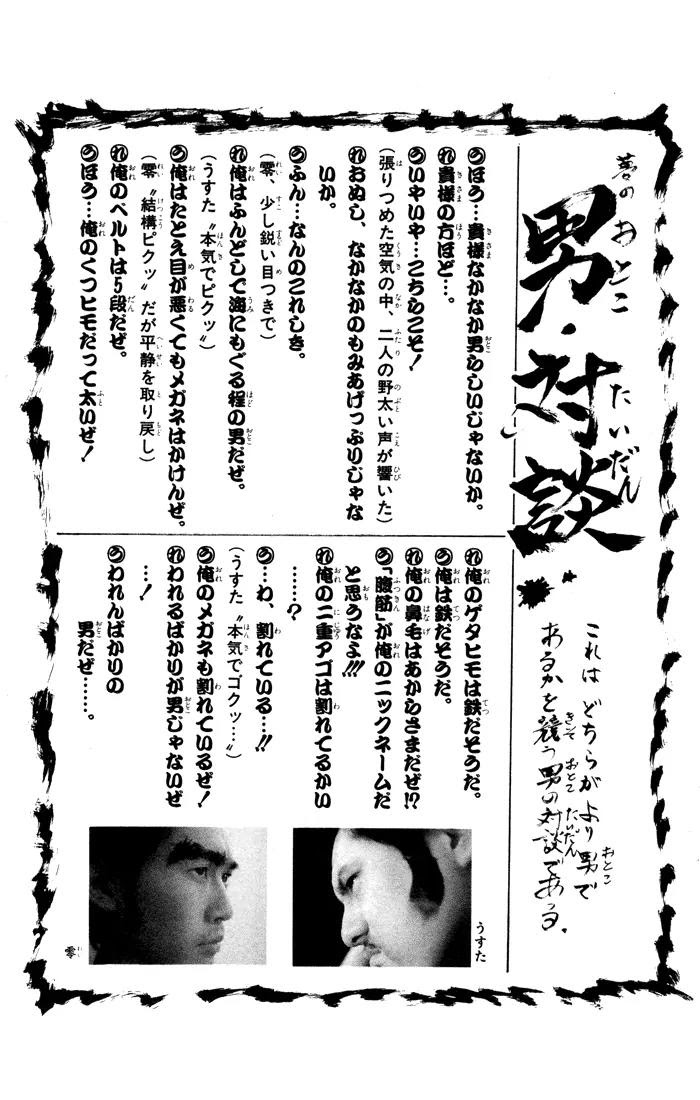 夢の
男・対談
おとこ たいだん
これは どちらがより男で
あるかを競う男の対談である.
うほう…貴様なかなか男らしいじゃないか。
れ貴様の方ほど…。
ういやいや…こちらこそ！
（張りつめた空気の中、二人の野太い声が響いた）
れおぬし、なかなかのもみあげっぷりじゃな
いか。
うふん…なんのこれしき。
（零、少し鋭い目つきで）
れ俺はふんどしで海にもぐる程の男だぜ。
（うすた〝本気でピクッ〟）
う俺はたとえ目が悪くてもメガネはかけんぜ。
（零〝結構ピクッ〟だが平静を取り戻し）
れ俺のベルトは5段だぜ。
うほう…俺のくつヒモだって太いぜ！
れ俺のゲタヒモは鉄だそうだ。
う俺は鉄だそうだ。
れ俺の鼻毛はあからさまだぜ!?
う「腹筋」が俺のニックネームだ
と思うなよ!!!
れ俺の二重アゴは割れてるかい
……？
う…わ、割れている…!!
（うすた〝本気でゴクッ…〟）
う俺のメガネも割れているぜ！
れわれるばかりが男じゃないぜ
…！
うわれんばかりの
男だぜ……。
うすた
零